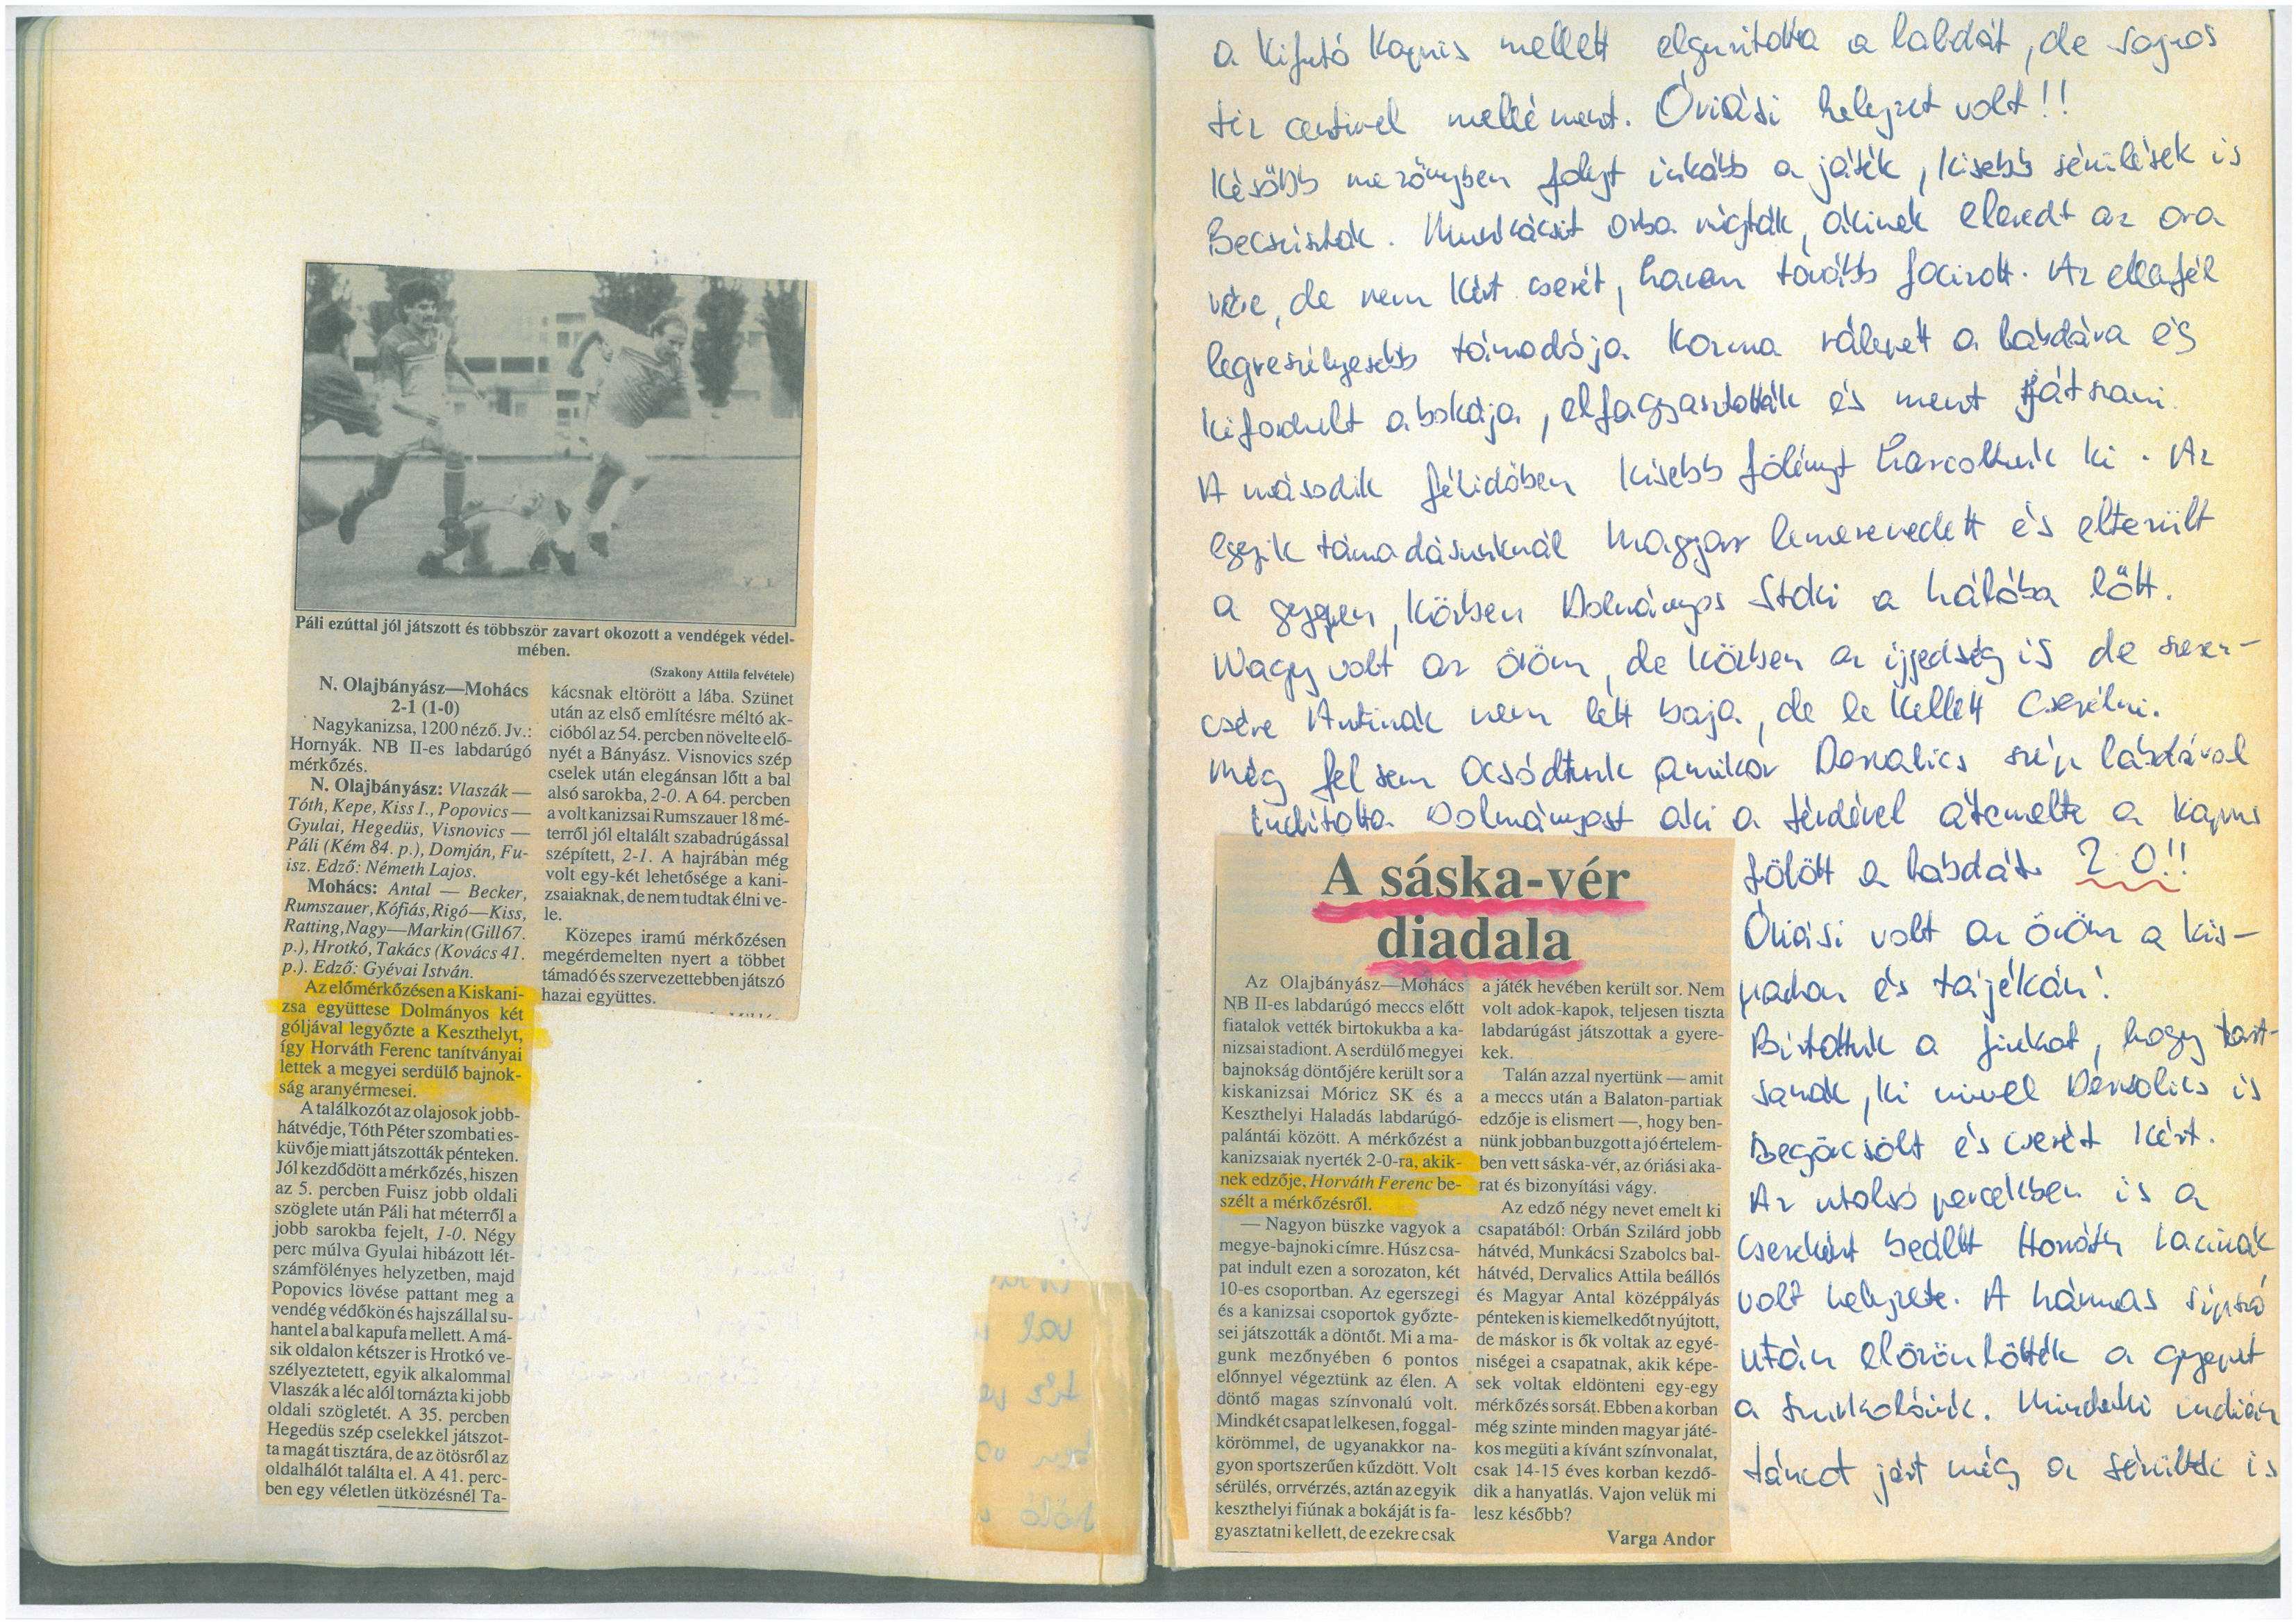 Páli ezúttal jól játszott és többször zavart okozott a vendégek védel-
mében.
(Szakony Attila felvétele)
N. Olajbányász—Mohács
2-1 (1-0)
Nagykanizsa, 1200 néző. Jv.:
Hornyák. NB II-es labdarúgó
mérkőzés.
N. Olajbányász: Vlaszák —
Tóth, Kepe, Kiss I., Popovics —
Gyulai, Hegedüs, Visnovics —
Páli (Kém 84. p.), Domján, Fu-
isz. Edző: Németh Lajos.
Mohács: Antal — Becker,
Rumszauer, Kófiás, Rigó—Kiss,
Ratting, Nagy—Markin (Gill 67.
p.), Hrotkó, Takács (Kovács 41.
p.). Edző: Gyévai István.
Az előmérkőzésen a Kiskani-
zsa együttese Dolmányos két
góljával legyőzte a Keszthelyt,
így Horváth Ferenc tanítványai
lettek a megyei serdülő bajnok-
ság aranyérmesei.
A találkozót az olajosok jobb-
hátvédje, Tóth Péter szombati es-
küvője miatt játszották pénteken.
Jól kezdődött a mérkőzés, hiszen
az 5. percben Fuisz jobb oldali
szöglete után Páli hat méterről a
jobb sarokba fejelt, 1-0. Négy
perc múlva Gyulai hibázott lét-
számfölényes helyzetben, majd
Popovics lövése pattant meg a
vendég védőkön és hajszállal su-
hant el a bal kapufa mellett. A má-
sik oldalon kétszer is Hrotkó ve-
szélyeztetett, egyik alkalommal
Vlaszák a léc alól tornázta ki jobb
oldali szögletét. A 35. percben
Hegedüs szép cselekkel játszot-
ta magát tisztára, de az ötösről az
oldalhálót találta el. A 41. perc-
ben egy véletlen ütközésnél Ta-
kácsnak eltörött a lába. Szünet
után az első említésre méltó ak-
cióból az 54. percben növelte elő-
nyét a Bányász. Visnovics szép
cselek után elegánsan lőtt a bal
alsó sarokba, 2-0. A 64. percben
a volt kanizsai Rumszauer 18 mé-
terről jól eltalált szabadrúgással
szépített, 2-1. A hajrában még
volt egy-két lehetősége a kani-
zsaiaknak, de nem tudtak élni ve-
le.
Közepes iramú mérkőzésen
megérdemelten nyert a többet
támadó és szervezettebben játszó
hazai együttes.
a kifutó kapus mellett elgurította a labdát, de sajnos
tíz centivel mellé ment. Óriási helyzet volt!!
Később mezőnyben folyt inkább a játék, kisebb sérülések is
becsúsztak. Munkácsit orba rúgták, akinek eleredt az ora
vére, de nem kért cserét, hanem tovább focizott. Az ellenfél
legveszélyesebb támadója Kozma rálépett a labdára és
kifordult a bokája, elfagyasztották és ment játszani.
A második félidőben kisebb fölényt harcoltunk ki. Az
egyik támadásunknál Magyar lemerevedett és elterült
a gyepen, közben Dolmányos Stoki a hálóba lőtt.
Nagy volt az öröm, de közben az ijjedség is de szeren-
csére Antinak nem lett baja, de le kellett cserélni.
Még fel sem ocsódtunk amikor Dervalics szép labdával
indította Dolmányost aki a térdével átemelte a kapus
fölött a labdát. 2:0!!
Óriási volt az öröm a kis-
padon és tájékán!
Bíztattuk a fiúkat, hogy tart-
sanak ki mivel Dervalics is
begörcsölt és cserét kért.
Az utolsó percekben is a
csereként beállt Horváth Lacinak
volt helyzete. A hármas sípszó
után elözönlötték a gyepet
a szurkolóink. Mindenki indián
táncot járt még a sérültek is
A sáska-vér
diadala
Az Olajbányász—Mohács
NB II-es labdarúgó meccs előtt
fiatalok vették birtokukba a ka-
nizsai stadiont. A serdülő megyei
bajnokság döntőjére került sor a
kiskanizsai Móricz SK és a
Keszthelyi Haladás labdarúgó-
palántái között. A mérkőzést a
kanizsaiak nyerték 2-0-ra, akik-
nek edzője, Horváth Ferenc be-
szélt a mérkőzésről.
— Nagyon büszke vagyok a
megye-bajnoki címre. Húsz csa-
pat indult ezen a sorozaton, két
10-es csoportban. Az egerszegi
és a kanizsai csoportok győzte-
sei játszották a döntőt. Mi a ma-
gunk mezőnyében 6 pontos
előnnyel végeztünk az élen. A
döntő magas színvonalú volt.
Mindkét csapat lelkesen, foggal-
körömmel, de ugyanakkor na-
gyon sportszerűen küzdött. Volt
sérülés, orrvérzés, aztán az egyik
keszthelyi fiúnak a bokáját is fa-
gyasztatni kellett, de ezekre csak
a játék hevében került sor. Nem
volt adok-kapok, teljesen tiszta
labdarúgást játszottak a gyere-
kek.
Talán azzal nyertünk — amit
a meccs után a Balaton-partiak
edzője is elismert —, hogy ben-
nünk jobban buzgott a jó értelem-
ben vett sáska-vér, az óriási aka-
rat és bizonyítási vágy.
Az edző négy nevet emelt ki
csapatából: Orbán Szilárd jobb
hátvéd, Munkácsi Szabolcs bal-
hátvéd, Dervalics Attila beállós
és Magyar Antal középpályás
pénteken is kiemelkedőt nyújtott,
de máskor is ők voltak az egyé-
niségei a csapatnak, akik képe-
sek voltak eldönteni egy-egy
mérkőzés sorsát. Ebben a korban
még szinte minden magyar játé-
kos megüti a kívánt színvonalat,
csak 14-15 éves korban kezdő-
dik a hanyatlás. Vajon velük mi
lesz később?
Varga Andor